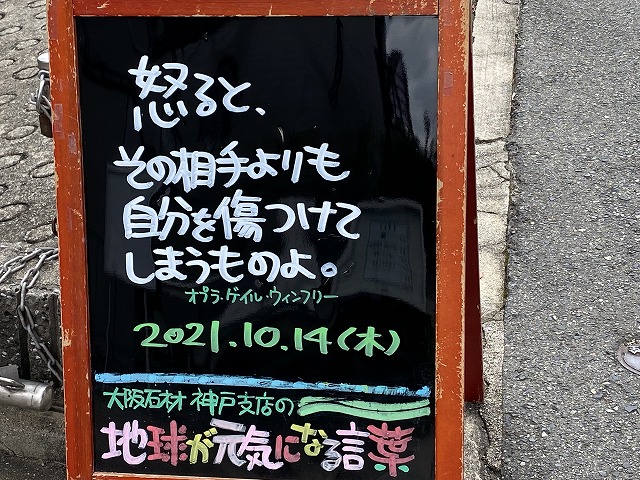 怒ると、
その相手よりも
自分を傷つけて
しまうものよ。
オプラ・ゲイル・ウィンフリー
2021.10.14(木)
大阪石材 神戸支店の
地球が元気になる言葉